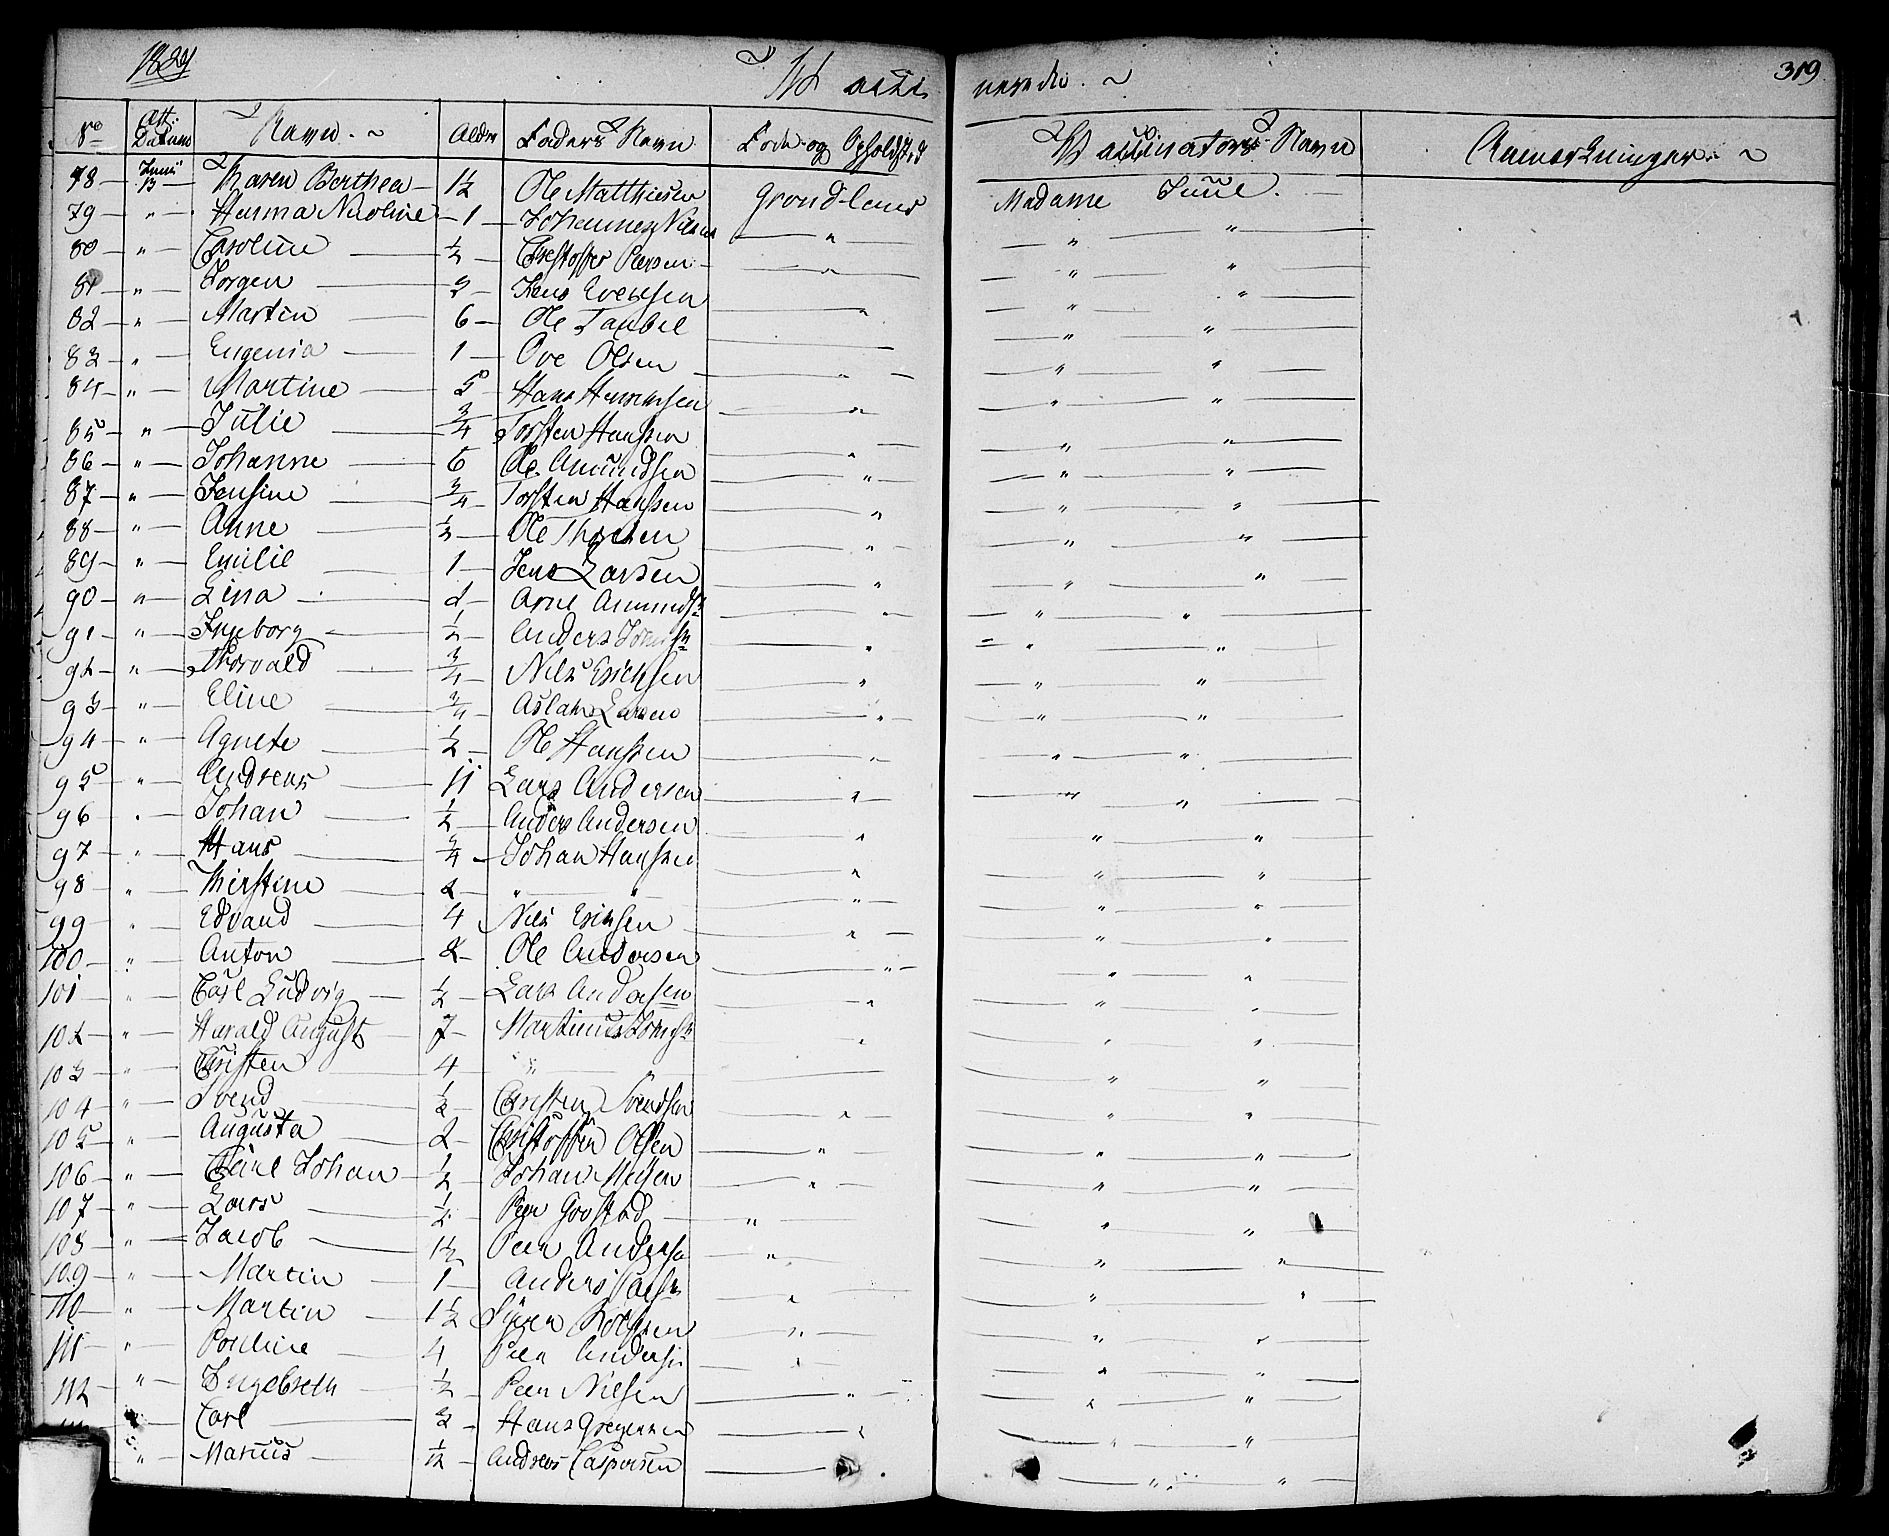 1829 Vacci nerede. 319
No Att: Datum Navn. Alder Faders Navn Føde og Opholdsted Vaccinators Navn Anmerkninger.
78 Junii 13 Karen Berthea 1½ Ole Matthiesen Grond-lands Madame Juul.
79 " Herma Nicoline 1 Johannes Nilsen " " "
80 " Caroline ½ Christoffer Persen " " "
81 " Jorgen 3 Jens Evensen " " "
82 " Martin 6 Ole " "
83 " Eugenia 1 Ove Olsen " " "
84 " Martine 5 Hans Hansen " " "
85 " Julie ¾ Torsten Hanssen " " "
86 " Johanne 6 Ole Amundsen " " "
87 " Jensine ¾ Torsten Hanssen " " "
88 " Anne ½ Ole " " "
89 " Emilie 1 Jens Larsen " " "
90 " Lina 2 Arne Amunds " " "
91 " Ingeborg ½ Anders " " "
92 " Thorvald ¾ Nils Erichsen " " "
93 " Eline ¾ Aslak Larsen " " "
94 " Agnete ½ Ole Hanssen " " "
95 " Andreas 11 Lars Andersen " " "
96 " Johan ½ Anders Andersen " " "
97 " Hans ¾ Johan Hanssen " " "
98 " Kirstine 2 " " " " "
99 " Edvard 4 Nils Eriksen " " "
100 " Anton 2 Ole Andersen " " "
101 " Carl Ludvig ½ Lars Andersen " " "
102 " Harald August 7 Martinus " " "
103 " Christen 4 " " "
104 " Svend ½ Christen Svendsen " " "
105 " Augusta 2 Christoffer Olsen " " "
106 " Carl Johan ½ Johan " " "
107 " Lars ½ Peer " " "
108 " Jacob 1½ Peer Anders " " "
109 " Martin 1 Anders " " "
110 " Martin 1½ " " "
111 " Pouline 4 Peer Anders " " "
112 " Engebreth ½ Peer Nilsen " " "
Carl Hans Gregersen " " "
" Marius ½ Andreas Caspersen " "